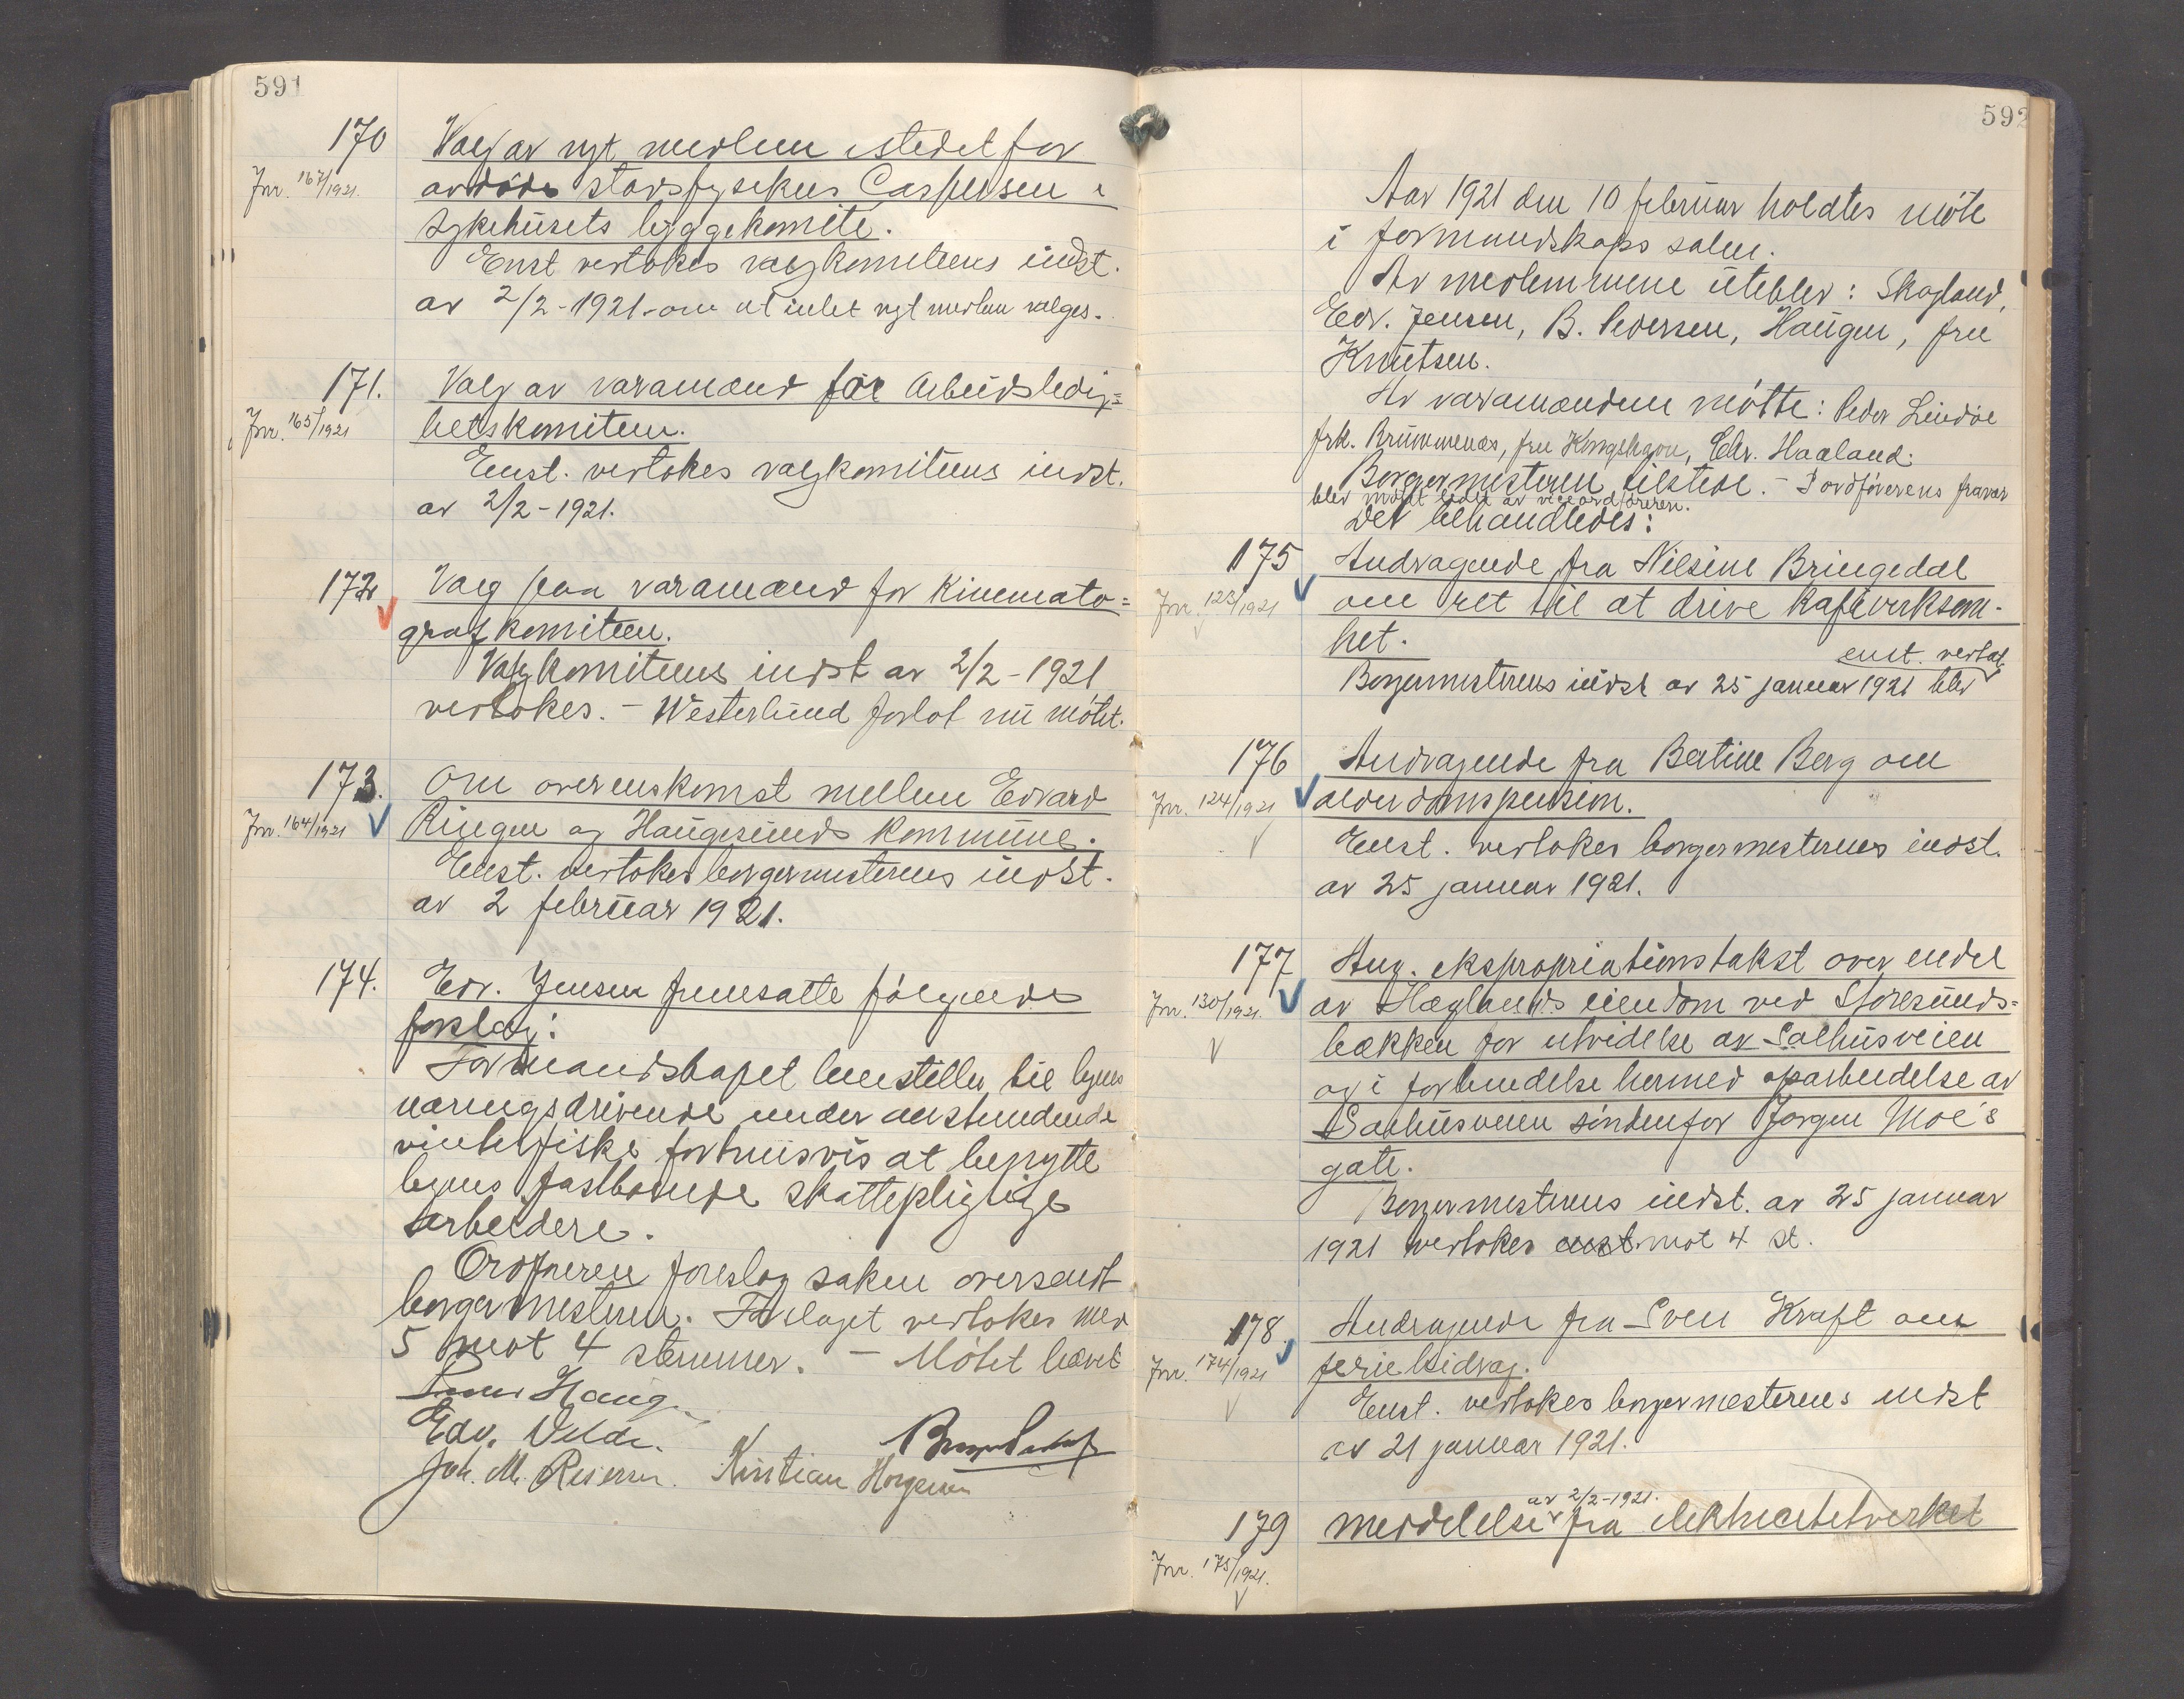 591
170
Valg av nyt medlem istedet for
Jnr. 167/1921.
avdøde stadsfysikus Caspersen i
sykehusets byggekomite.
Enst vedtokes valgkomiteens indst.
av 2/2-1921 - om at intet nyt medlem vælges.
171.
Valg av varamænd for Arbeidsledig=
Jnr. 165/1921
hetskomiteen.
Enst. vedtokes valgkomiteens indst.
av 2/2-1921.
172
Valg paa varamænd for Kinemato=
grafkomiteen.
Valgkomiteens indst av 2/2-1921
vedtokes. - Westerlund forlot nu møtet.
173.
Om overenskomst mellem Edvard
Jnr. 164/1921
Ringen og Haugesunds kommune.
Enst. vedtokes borgermesterens indst.
av 2 februar 1921.
174.
Edv. Jensen fremsatte følgende
forslag:
Formandskapet henstiller til byens
næringsdrivende under anstundende
vinterfiske fortrinsvis at benytte
byens fastboende skattepligtige
arbeidere.
Ordføreren foreslog saken oversendt
borgermesteren. Forslaget vedtokes med
5 mot 4 stemmer. - Møtet hævet
Haug
Edv. Velde.
Joh. M. Kristian
592
Aar 1921 den 10 februar holdtes møte
i formandskaps salen.
Av medlemmene uteblev: Skogland,
Edv. Jensen, B. Pedersen, Haugen, fru
Knutsen.
Av varamændene møtte: Peder Lindøe
frk. Brummenæs, fru Kongshavn, Chr. Haaland.
Borgermesteren tilstede. - I ordførerens fravær
blev møtet ledet av viceordføreren.
Det behandledes:
175
Andragende fra Nilsine Bringedal
Jnr. 123/1921
om ret til at drive kafeverksom-
het.
enst. vedtat
Borgermesterens indst av 25 januar 1921 blev
176
Andragende fra Bertine Berg om
Jnr. 124/1921
alderdomspension.
Enst. vedtokes borgermesterens indst.
av 25 januar 1921.
177
Ang. ekspropriationstakst over endel
Jnr. 130/1921.
av Haglands eiendom ved Storesunds=
bækken for utvidelse av Salhusveien
og i forbindelse hermed oparbeidelse av
Salhusveien søndenfor Jørgen Moe's
gate.
Borgermesterens indst. av 25 januar
1921 vedtokes enst. mot 4 st.
178
Andragende fra Sven Kraft om
Jnr. 174/1921
feriebidrag.
Enst. vedtokes borgermesterens indst
av 21 januar 1921.
av 2/2-1921.
179
Meddelelse fra elektricitetverket
Jnr. 175/1921.